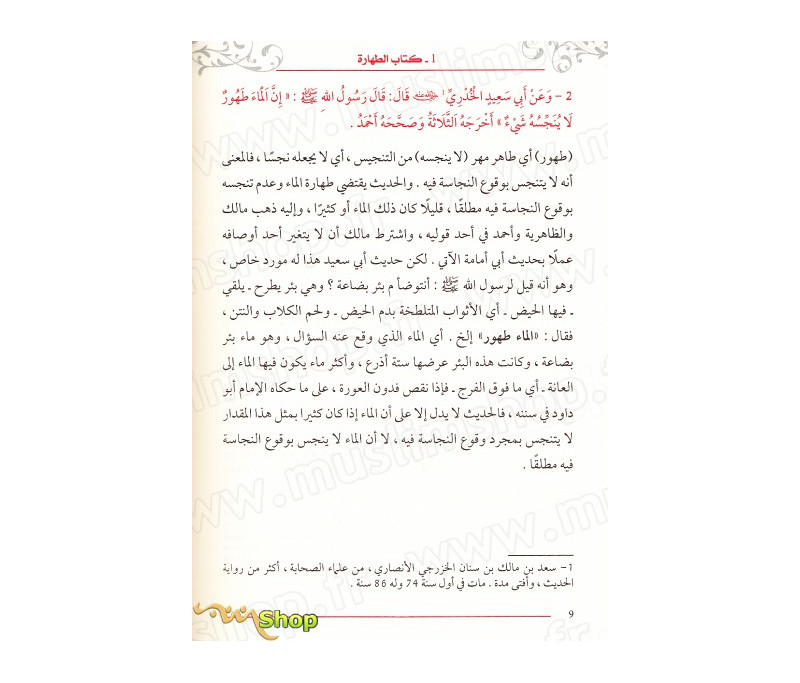 1 ـ كتاب الطهارة
2 – وَعَنْ أَبِي سَعِيدٍ الْخُدْرِيِّ ¹ رضي الله عنه قَالَ : قَالَ رَسُولُ اللهِ ﷺ : « إِنَّ اَلْمَاءَ طَهُورٌ
لَا يُنَجِّسُهُ شَيْءٌ » أَخْرَجَهُ اَلثَّلَاثَةُ وَصَحَّحَهُ أَحْمَدُ .
(طهور) أي طاهر مهر (لا ينجسه) من التنجيس ، أي لا يجعله نجسًا ، فالمعنى
أنه لا يتنجس بوقوع النجاسة فيه . والحديث يقتضي طهارة الماء وعدم تنجسه
بوقوع النجاسة فيه مطلقًا ، قليلًا كان ذلك الماء أو كثيرًا ، وإليه ذهب مالك
والظاهرية وأحمد في أحد قوليه ، واشترط مالك أن لا يتغير أحد أوصافه
عملًا بحديث أبي أمامة الآتي . لكن حديث أبي سعيد هذا له مورد خاص ،
وهو أنه قيل لرسول الله ﷺ : أنتوضأ م بئر بضاعة ؟ وهي بئر يطرح ـ يلقي
ـ فيها الحيض ـ أي الأثواب المتلطخة بدم الحيض ـ ولحم الكلاب والنتن ،
فقال : «الماء طهور» إلخ . أي الماء الذي وقع عنه السؤال ، وهو ماء بئر
بضاعة ، وكانت هذه البئر عرضها ستة أذرع ، وأكثر ماء يكون فيها الماء إلى
العانة ـ أي ما فوق الفرج ـ فإذا نقص فدون العورة ، على ما حكاه الإمام أبو
داود في سننه ، فالحديث لا يدل إلا على أن الماء إذا كان كثيرا بمثل هذا المقدار
لا يتنجس بمجرد وقوع النجاسة فيه ، لا أن الماء لا ينجس بوقوع النجاسة
فيه مطلقًا .
1– سعد بن مالك بن سنان الخزرجي الأنصاري ، من علماء الصحابة ، أكثر من رواية
الحديث ، وأفتى مدة . مات في أول سنة 74 وله 86 سنة .
9
Shop
www.muslimshop.fr